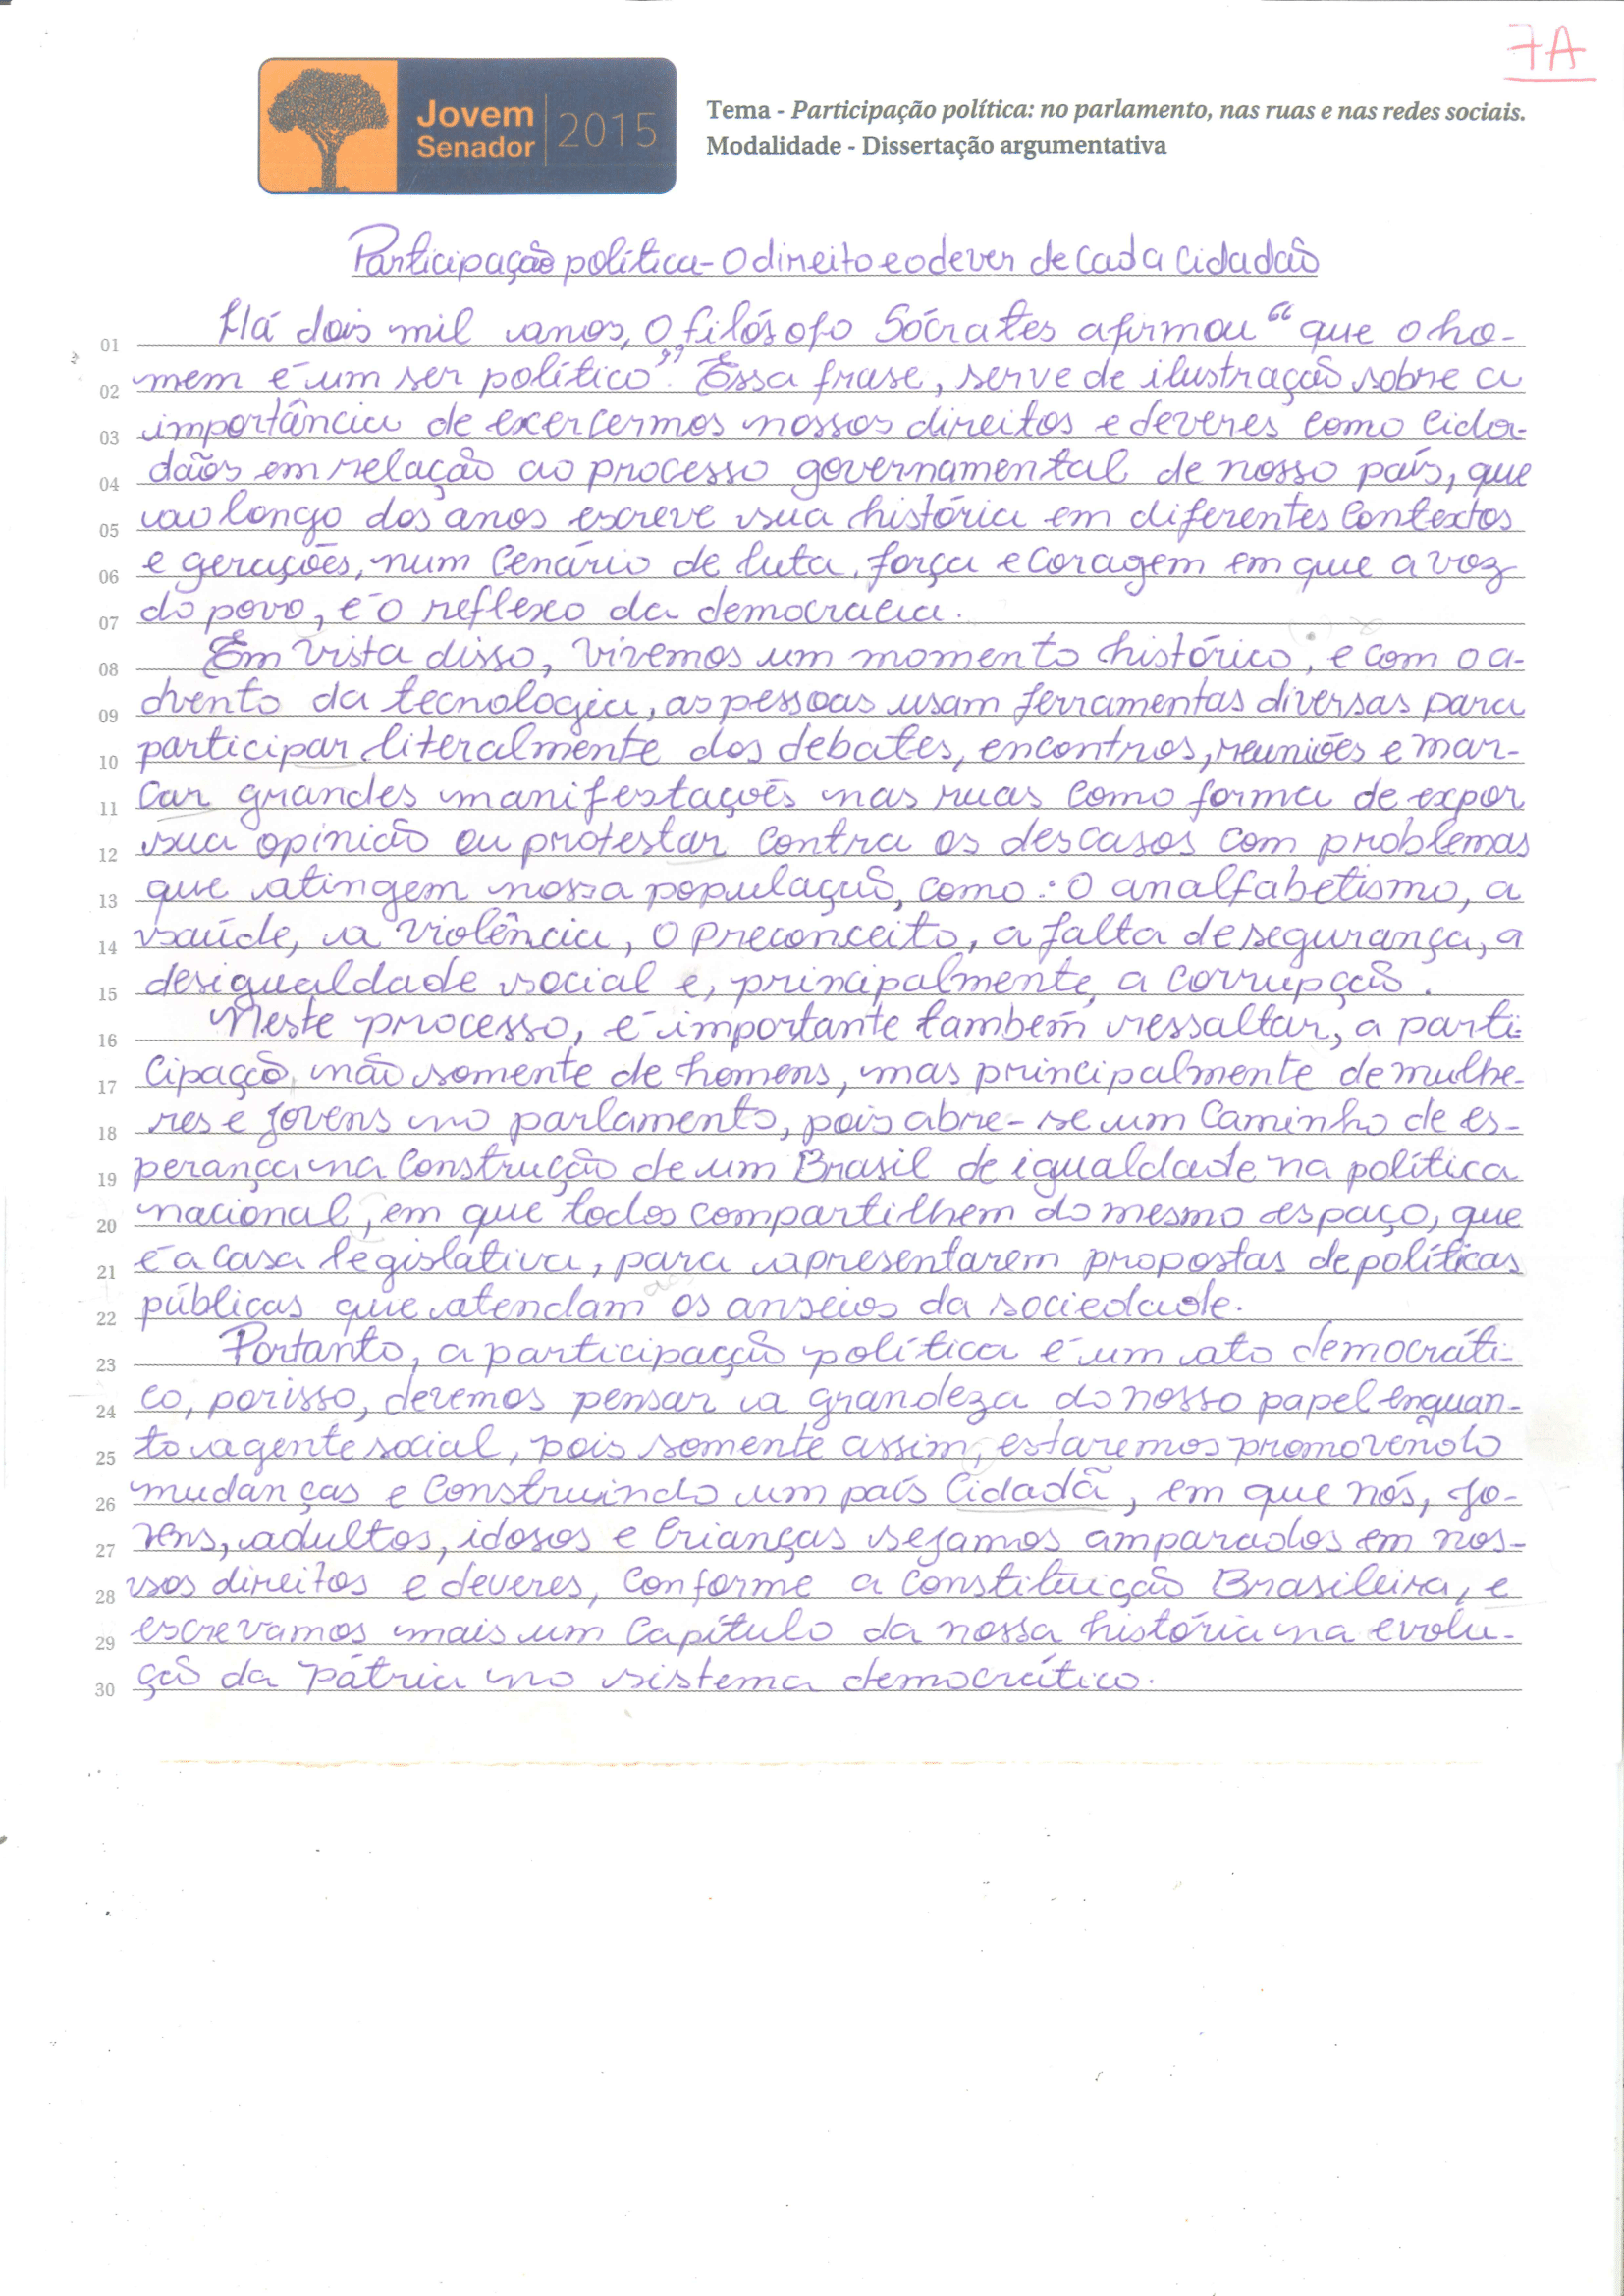 7A
Jovem
Senador
2015
Tema - Participação política: no parlamento, nas ruas e nas redes sociais.
Modalidade - Dissertação argumentativa
Participação política - O direito e o dever de cada cidadão
01 Há dois mil anos, o filósofo Sócrates afirmou “que o ho-
02 mem é um ser político”. Essa frase, serve de ilustração sobre a
03 importância de exercermos nossos direitos e deveres como cida-
04 dãos em relação ao processo governamental de nosso país, que
05 ao longo dos anos escreve sua história em diferentes contextos
06 e gerações, num cenário de luta, força e coragem em que a voz
07 do povo, é o reflexo da democracia.
08 Em vista disso, vivemos um momento histórico, e com o a-
09 dvento da tecnologia, as pessoas usam ferramentas diversas para
10 participar literalmente dos debates, encontros, reuniões e mar-
11 car grandes manifestações nas ruas como forma de expor
12 sua opinião ou protestar contra os descasos com problemas
13 que atingem nossa população, como: o analfabetismo, a
14 saúde, a violência, o preconceito, a falta de segurança, a
15 desigualdade social e, principalmente, a corrupção.
16 Neste processo, é importante também ressaltar, a parti-
17 cipação, não somente de homens, mas principalmente de mulhe-
18 res e jovens no parlamento, pois abre-se um caminho de es-
19 perança na construção de um Brasil de igualdade na política
20 nacional, em que todos compartilhem do mesmo espaço, que
21 é a casa legislativa, para apresentarem propostas de políticas
22 públicas que atendam os anseios da sociedade.
23 Portanto, a participação política é um ato democráti-
24 co, por isso, devemos pensar a grandeza do nosso papel enquan-
25 to agente social, pois somente assim, estaremos promovendo
26 mudanças e construindo um país cidadã, em que nós, jo-
27 vens, adultos, idosos e crianças sejamos amparados em nos-
28 sos direitos e deveres, conforme a Constituição Brasileira, e
29 escrevamos mais um capítulo da nossa história na evolu-
30 ção da pátria no sistema democrático.